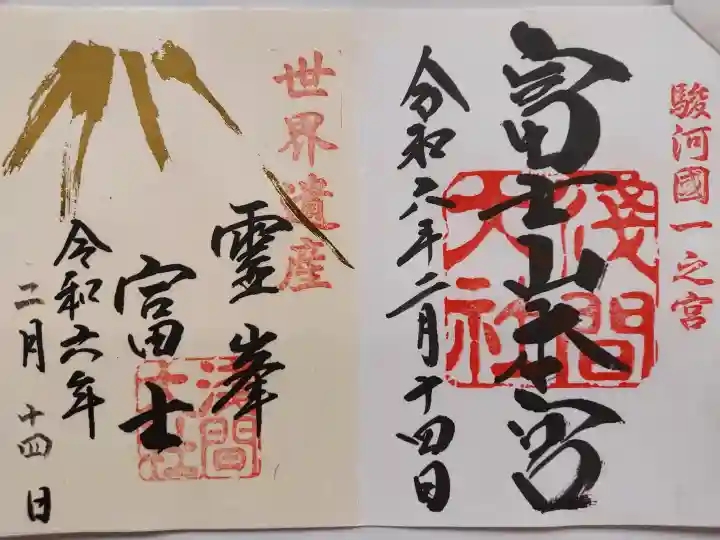 駿河國一之宮
富士山本宮
淺間大社
令和六年二月十四日
世界遺産
靈峯
富士
淺間大社
令和六年
二月十四日